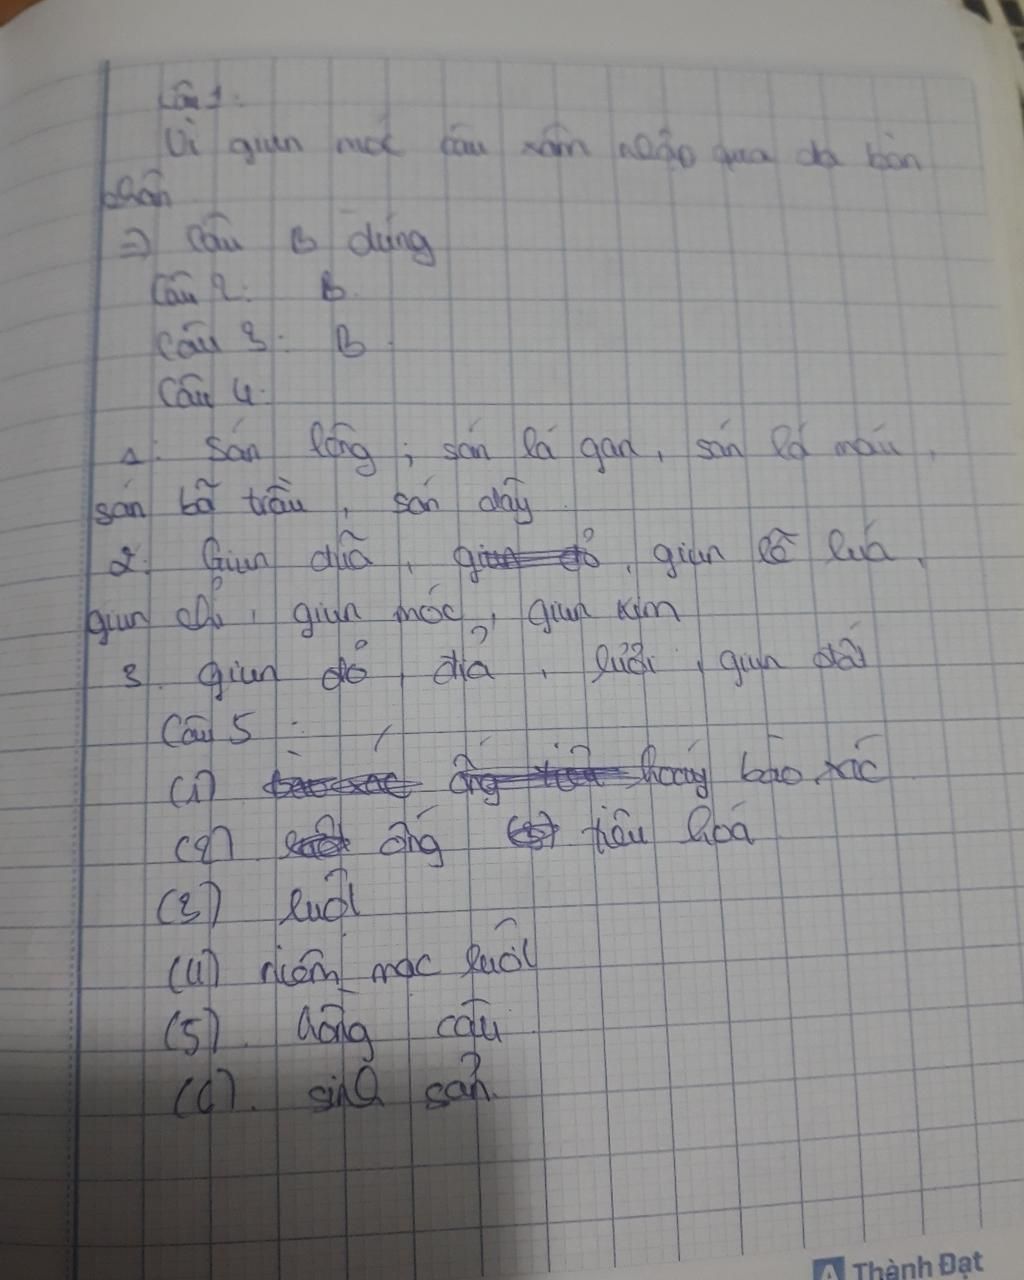 Câu 1:
Vì giun móc câu xâm nhập qua da bàn
chân
=> Câu B đúng
Câu 2: B.
Câu 3: B
Câu 4.
1. Sán lông, sán lá gan, sán lá máu,
sán bã trầu, sán dây
2. Giun đũa, giun đỏ, giun rễ lúa,
giun chỉ, giun móc, giun kim
3. giun đỏ, đỉa, rươi, giun đất
Câu 5:
(1) khoang bào xác
(2) ống tiêu hoá
(3) ruột
(4) niêm mạc ruột
(5) hồng cầu
(6). sinh sản.
Thành Đạt